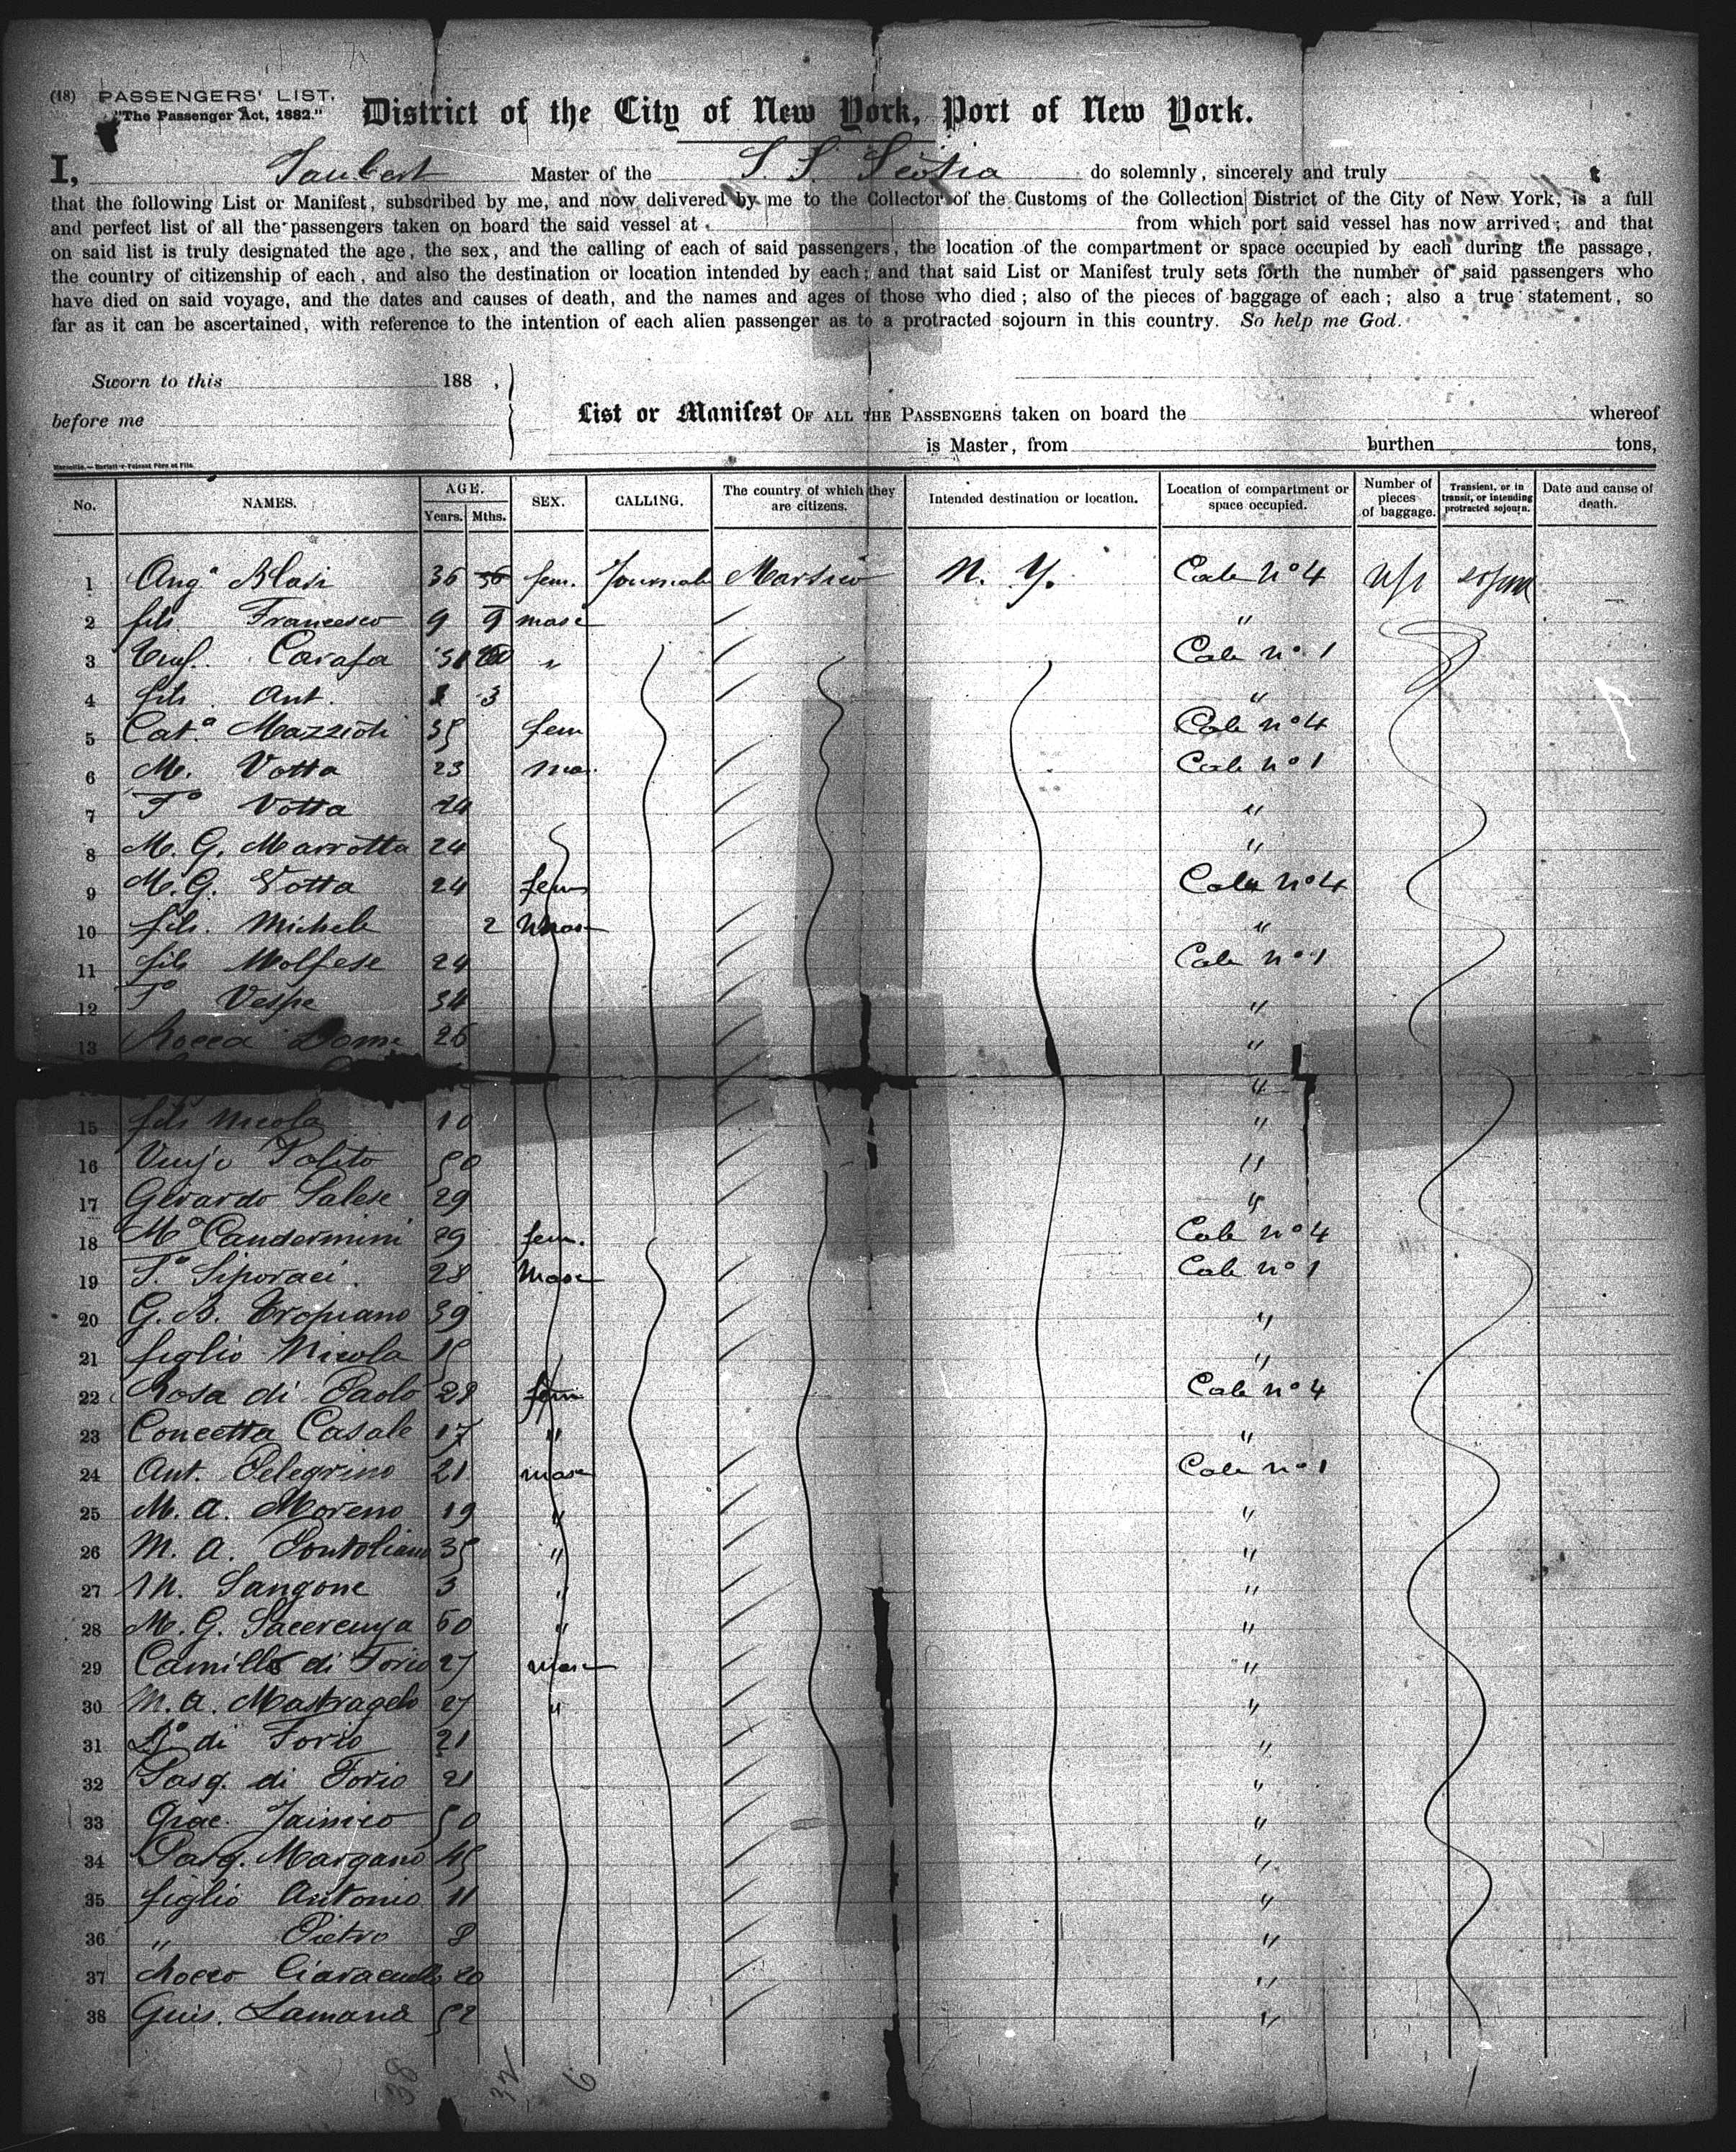 (18) PASSENGERS' LIST.
"The Passenger Act, 1882."
District of the City of New York, Port of New York.
I, Taubert Master of the S. S. Scotia do solemnly, sincerely and truly
that the following List or Manifest, subscribed by me, and now delivered by me to the Collector of the Customs of the Collection District of the City of New York, is a full
and perfect list of all the passengers taken on board the said vessel at from which port said vessel has now arrived; and that
on said list is truly designated the age, the sex, and the calling of each of said passengers, the location of the compartment or space occupied by each during the passage,
the country of citizenship of each, and also the destination or location intended by each; and that said List or Manifest truly sets forth the number of said passengers who
have died on said voyage, and the dates and causes of death, and the names and ages of those who died; also of the pieces of baggage of each; also a true statement, so
far as it can be ascertained, with reference to the intention of each alien passenger as to a protracted sojourn in this country. So help me God.
Sworn to this 188 ,
before me
List or Manifest OF ALL THE PASSENGERS taken on board the whereof
is Master, from burthen tons,
No. NAMES. AGE. Years. Mths. SEX. CALLING. The country of which they are citizens. Intended destination or location. Location of compartment or space occupied. Number of pieces of baggage. Transient, or in transit, or intending protracted sojourn. Date and cause of death.
1 Ang.a Blasi 36 36 fem. Marsico N. Y. Cale No 4
2 fils Francesco 9 9 masc "
3 Carafa 31 " Cale no 1
4 fils Ant. 3 "
5 Cat.a Mazzioti 35 fem Cale no 4
6 M. Votta 23 mas. Cale no 1
7 Fo Votta 24 "
8 M. G. Marrotta 24 "
9 M. G. Votta 24 fem Cale no 4
10 fils. Michele 2 masc "
11 fils Molfese 24 Cale no 1
12 Fo Vespe 34 "
13 Rocca Dome 26 "
"
15 fils Nicola 10 "
16 Polito 50 "
17 Gerardo Salese 29 "
18 Ma Candermini 29 fem. Cale no 4
19 Siporaci 28 Masc Cale no 1
20 G. B. Tropiano 39 "
21 figlio Nicola 15 "
22 Rosa di Paolo 28 fem Cale no 4
23 Concetta Casale 17 " "
24 Ant. Pelegrino 21 masc Cale no 1
25 M. A. Moreno 19 " "
26 M. A. Pontoliano 35 " "
27 M. Sangone 3 " "
28 M. G. 50 " "
29 Camillo di Torio 27 masc "
30 M. A. Mastragelo 27 " "
31 di Torio 21 "
32 Pasq. di Torio 21 "
33 Grac. Jainico 50 "
34 Pasq. Margano 45 "
35 figlio Antonio 11 "
36 " Pietro 8 "
37 Rocco 20 "
38 Gius. Lamana 52 "
38 32 6